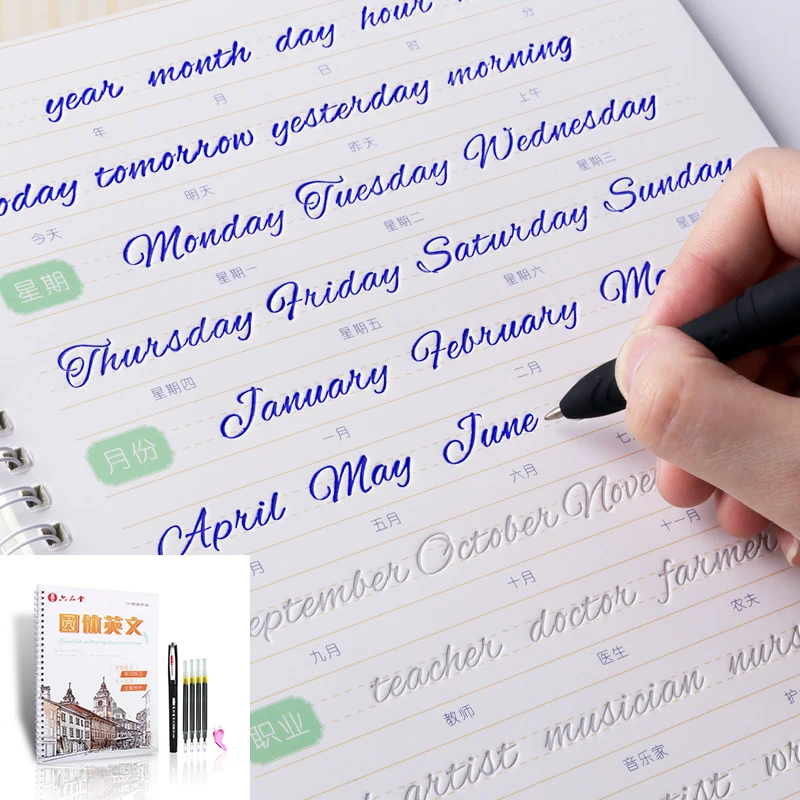 year month day hour
年 月 日 时 分
today tomorrow yesterday morning
今天 明天 昨天 上午
Monday Tuesday Wednesday
星期 星期一 星期二 星期三
Thursday Friday Saturday Sunday
星期四 星期五 星期六 星期
January February Ma
月份 一月 二月
April May June
月 五月 六月 七
eptember October Nove
九月 十月 十一月
teacher doctor farmer
职业 教师 医生 农夫
artist musician nurs
音乐家 护
tist wr
六品堂
圆体英文